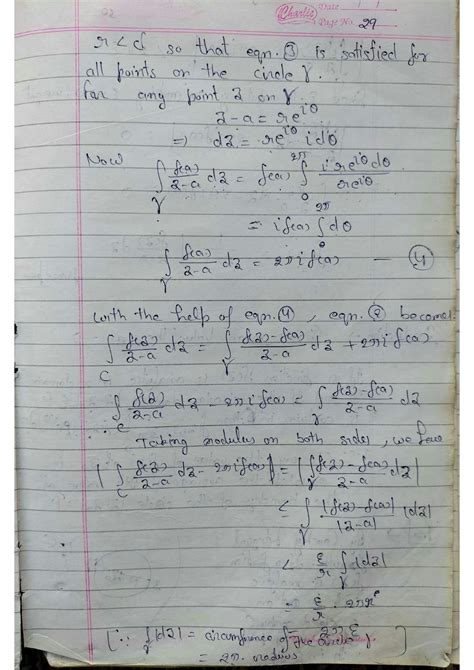 Charlie Date
Page No. 29
r < d so that eqn. ③ is satisfied for
all points on the circle γ.
for any point z on γ
z-a = re^{iθ}
⇒ dz = re^{iθ} i dθ
Now ∫_γ f(a)/(z-a) dz = f(a) ∫_0^{2π} i re^{iθ} dθ / re^{iθ}
= i f(a) ∫_0^{2π} dθ
∫_γ f(a)/(z-a) dz = 2πi f(a) — ④
with the help of eqn. ④, eqn. ② becomes
∫_C f(z)/(z-a) dz = ∫_γ (f(z)-f(a))/(z-a) dz + 2πi f(a)
∫_C f(z)/(z-a) dz - 2πi f(a) = ∫_γ (f(z)-f(a))/(z-a) dz
Taking modulus on both sides, we have
|∫_C f(z)/(z-a) dz - 2πi f(a)| = |∫_γ (f(z)-f(a))/(z-a) dz|
≤ ∫_γ |f(z)-f(a)|/|z-a| |dz|
< ε/r ∫_γ |dz|
= ε/r · 2πr
= 2πε
[∵ ∫_γ |dz| = circumference of the circle γ
= 2π. radius